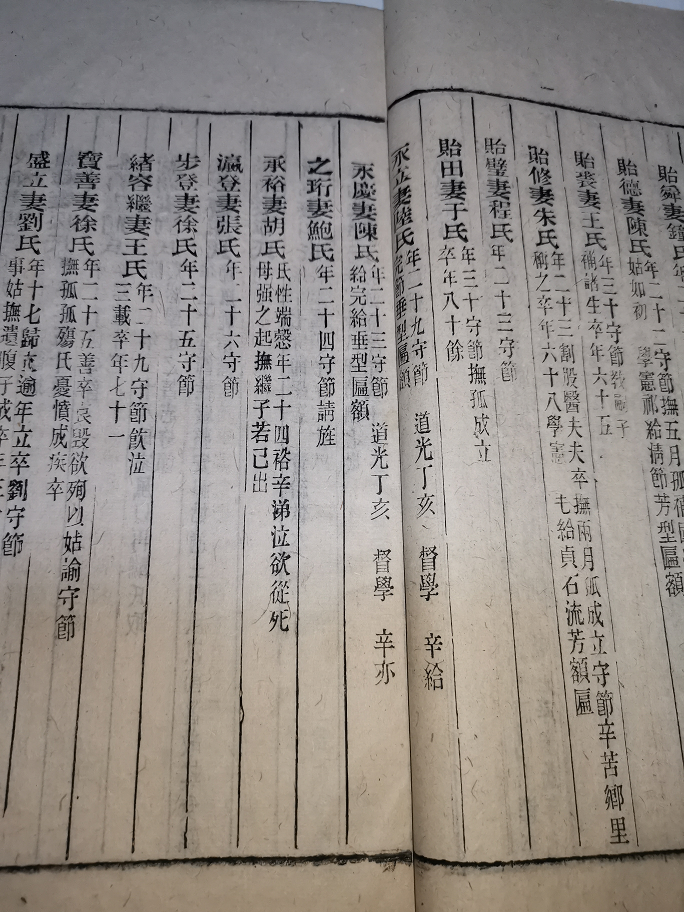 貽舜妻鍾氏年二
貽德妻陳氏年二十二守節撫五月孤
姑如初 學憲祁給清節芳型匾額
貽裘妻王氏年三十守節教嗣子
補諸生卒年六十五
貽修妻朱氏年二十三割股醫夫夫卒撫兩月孤成立守節辛苦鄉里
稱之卒年六十八學憲 毛給貞石流芳額匾
貽璧妻程氏年二十三守節
貽田妻于氏年三十守節撫孤成立
卒年八十餘
永立妻陸氏年二十九守節 道光丁亥 督學 辛給
完節垂型匾額
永慶妻陳氏年二十三守節 道光丁亥 督學 辛亦
給完給垂型匾額
之珩妻鮑氏年二十四守節請旌
永裕妻胡氏氏性端慤年二十四裕卒涕泣欲從死
母強之起撫繼子若己出
瀛登妻張氏年二十六守節
步登妻徐氏年二十五守節
緒容繼妻王氏年二十九守節飲泣
三載卒年七十一
寶善妻徐氏年二十五善卒哀毀欲殉以姑諭守節
撫孤孤殤氏憂憤成疾卒
盛立妻劉氏年十七歸克逾年立卒劉守節
事姑撫遺腹子成卒年三